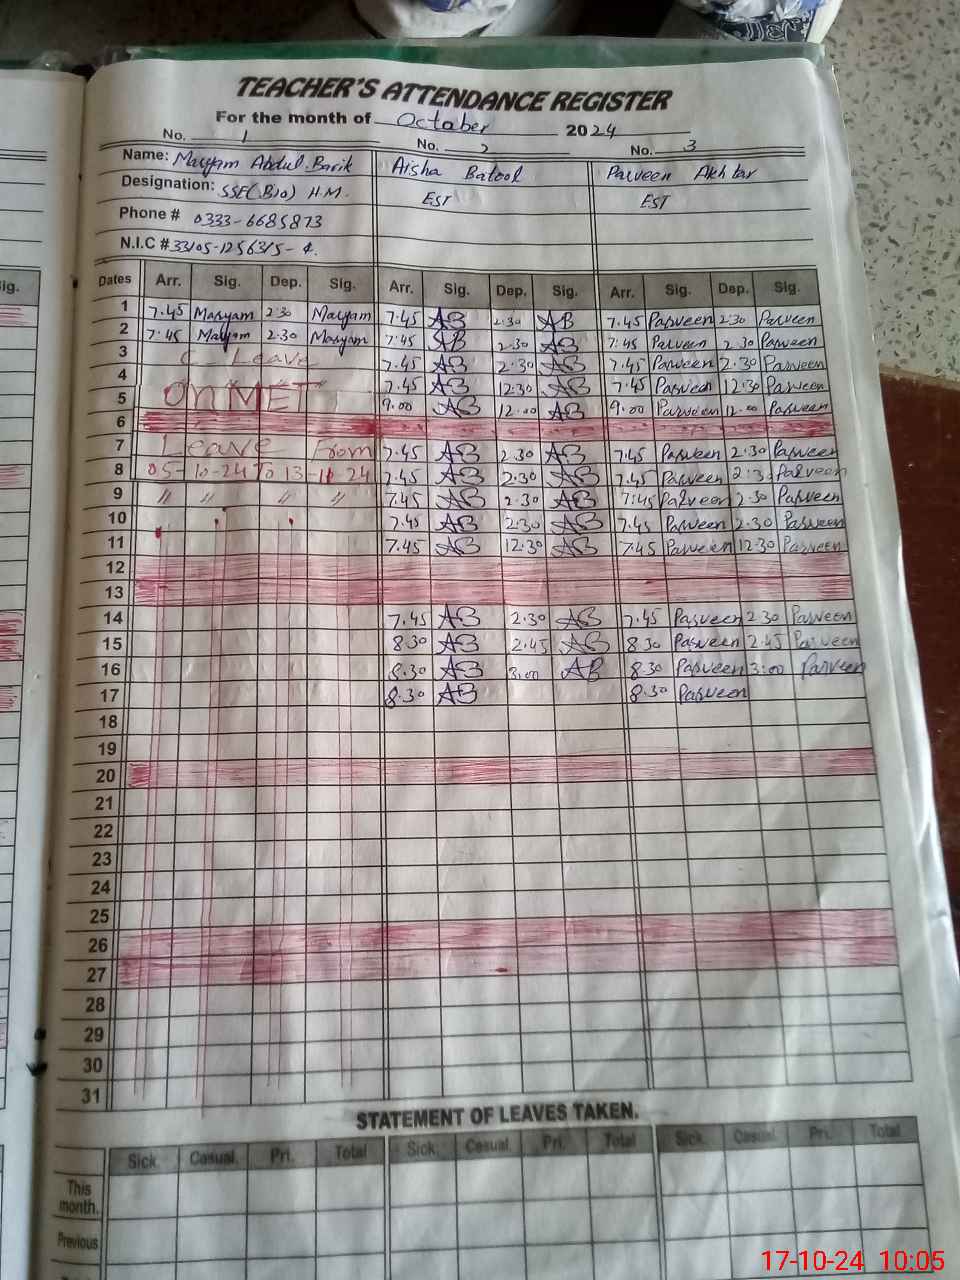 TEACHER'S ATTENDANCE REGISTER
For the month of October 2024
No. 1 No. 2 No. 3
Name: Maryam Abdul Barik Aisha Batool Parveen Akhtar
Designation: SSE(Bio) H.M. EST EST
Phone # 0333-6685873
N.I.C # 33105-1256315-4
ig.
Dates Arr. Sig. Dep. Sig. Arr. Sig. Dep. Sig. Arr. Sig. Dep. Sig.
1 7.45 Maryam 2.30 Maryam 7.45 AB 2.30 AB 7.45 Parveen 2.30 Parveen
2 7.45 Maryam 2.30 Maryam 7.45 AB 2.30 AB 7.45 Parveen 2.30 Parveen
3 C Leave 7.45 AB 2.30 AB 7.45 Parveen 2.30 Parveen
4 7.45 AB 12.30 AB 7.45 Parveen 12.30 Parveen
5 On MET 9.00 AB 12.00 AB 9.00 Parveen 12.00 Parveen
6
7 Leave From 7.45 AB 2.30 AB 7.45 Parveen 2.30 Parveen
8 05-10-24 To 13-11-24 7.45 AB 2.30 AB 7.45 Parveen 2.30 Parveen
9 " " " " 7.45 AB 2.30 AB 7.45 Parveen 2.30 Parveen
10 7.45 AB 2.30 AB 7.45 Parveen 2.30 Parveen
11 7.45 AB 12.30 AB 7.45 Parveen 12.30 Parveen
12
13
14 7.45 AB 2.30 AB 7.45 Parveen 2.30 Parveen
15 8.30 AB 2.45 AB 8.30 Parveen 2.45 Parveen
16 8.30 AB 3.00 AB 8.30 Parveen 3:00 Parveen
17 8.30 AB 8.30 Parveen
18
19
20
21
22
23
24
25
26
27
28
29
30
31
STATEMENT OF LEAVES TAKEN.
Sick. Casual. Pri. Total Sick. Casual. Pri. Total Sick. Casual. Pri. Total
This
month.
Previous
17-10-24 10:05